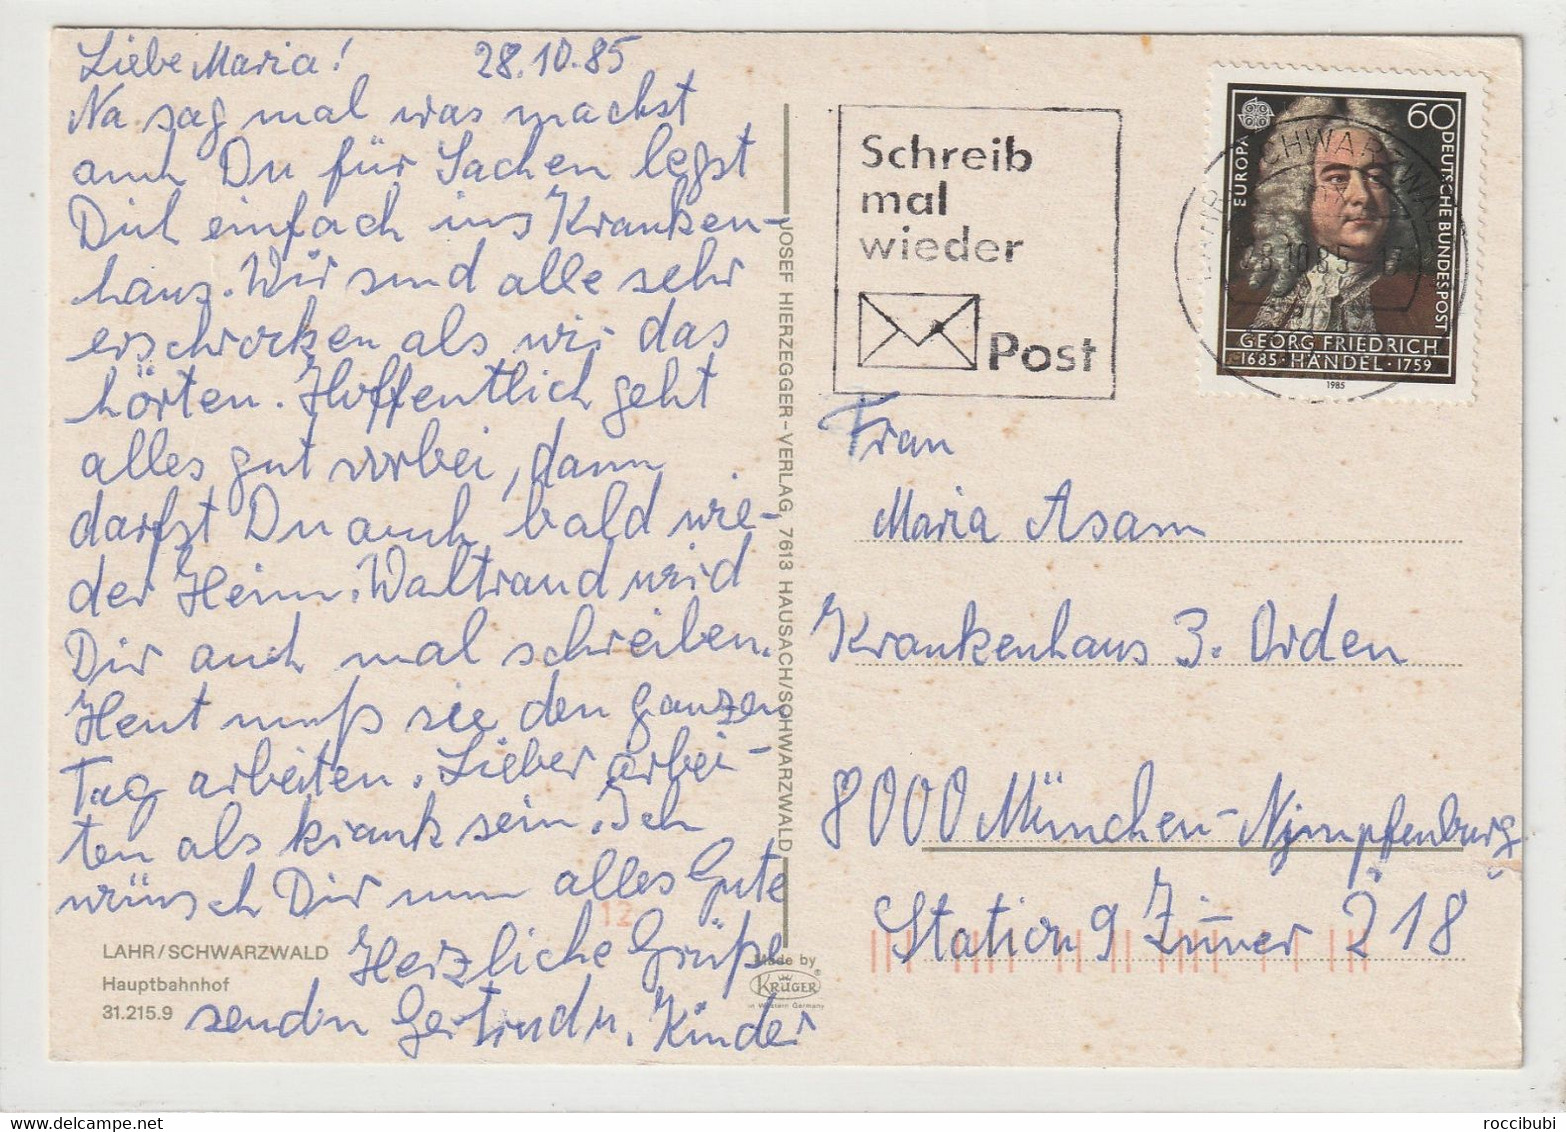 Liebe Maria! 28.10.85
Na sag mal was machst
auch Du für Sachen legst
Dich einfach ins Kranken-
haus. Wir sind alle sehr
erschrocken als wir das
hörten. Hoffentlich geht
alles gut vorbei, dann
darfst Du auch bald wie-
der Heim. Waltraud wird
Dir auch mal schreiben.
Heut muß sie den ganzen
Tag arbeiten. Lieber arbei-
ten als krank sein. Ich
wünsch Dir nun alles Gute
Herzliche Grüße
senden Gertrud u. Kinder
LAHR/SCHWARZWALD
Hauptbahnhof
31.215.9
12
JOSEF HIERZEGGER-VERLAG, 7613 HAUSACH/SCHWARZWALD
Made by
KRÜGER
in Western Germany
Schreib
mal
wieder
Post
60
EUROPA
DEUTSCHE BUNDESPOST
GEORG FRIEDRICH
1685·HÄNDEL·1759
1985
LAHR, SCHWARZWALD
28.10.85-17
Frau
Maria Asam
Krankenhaus 3. Orden
8000 München-Nympfenburg
Station 9 Zimer 218
roccibubi